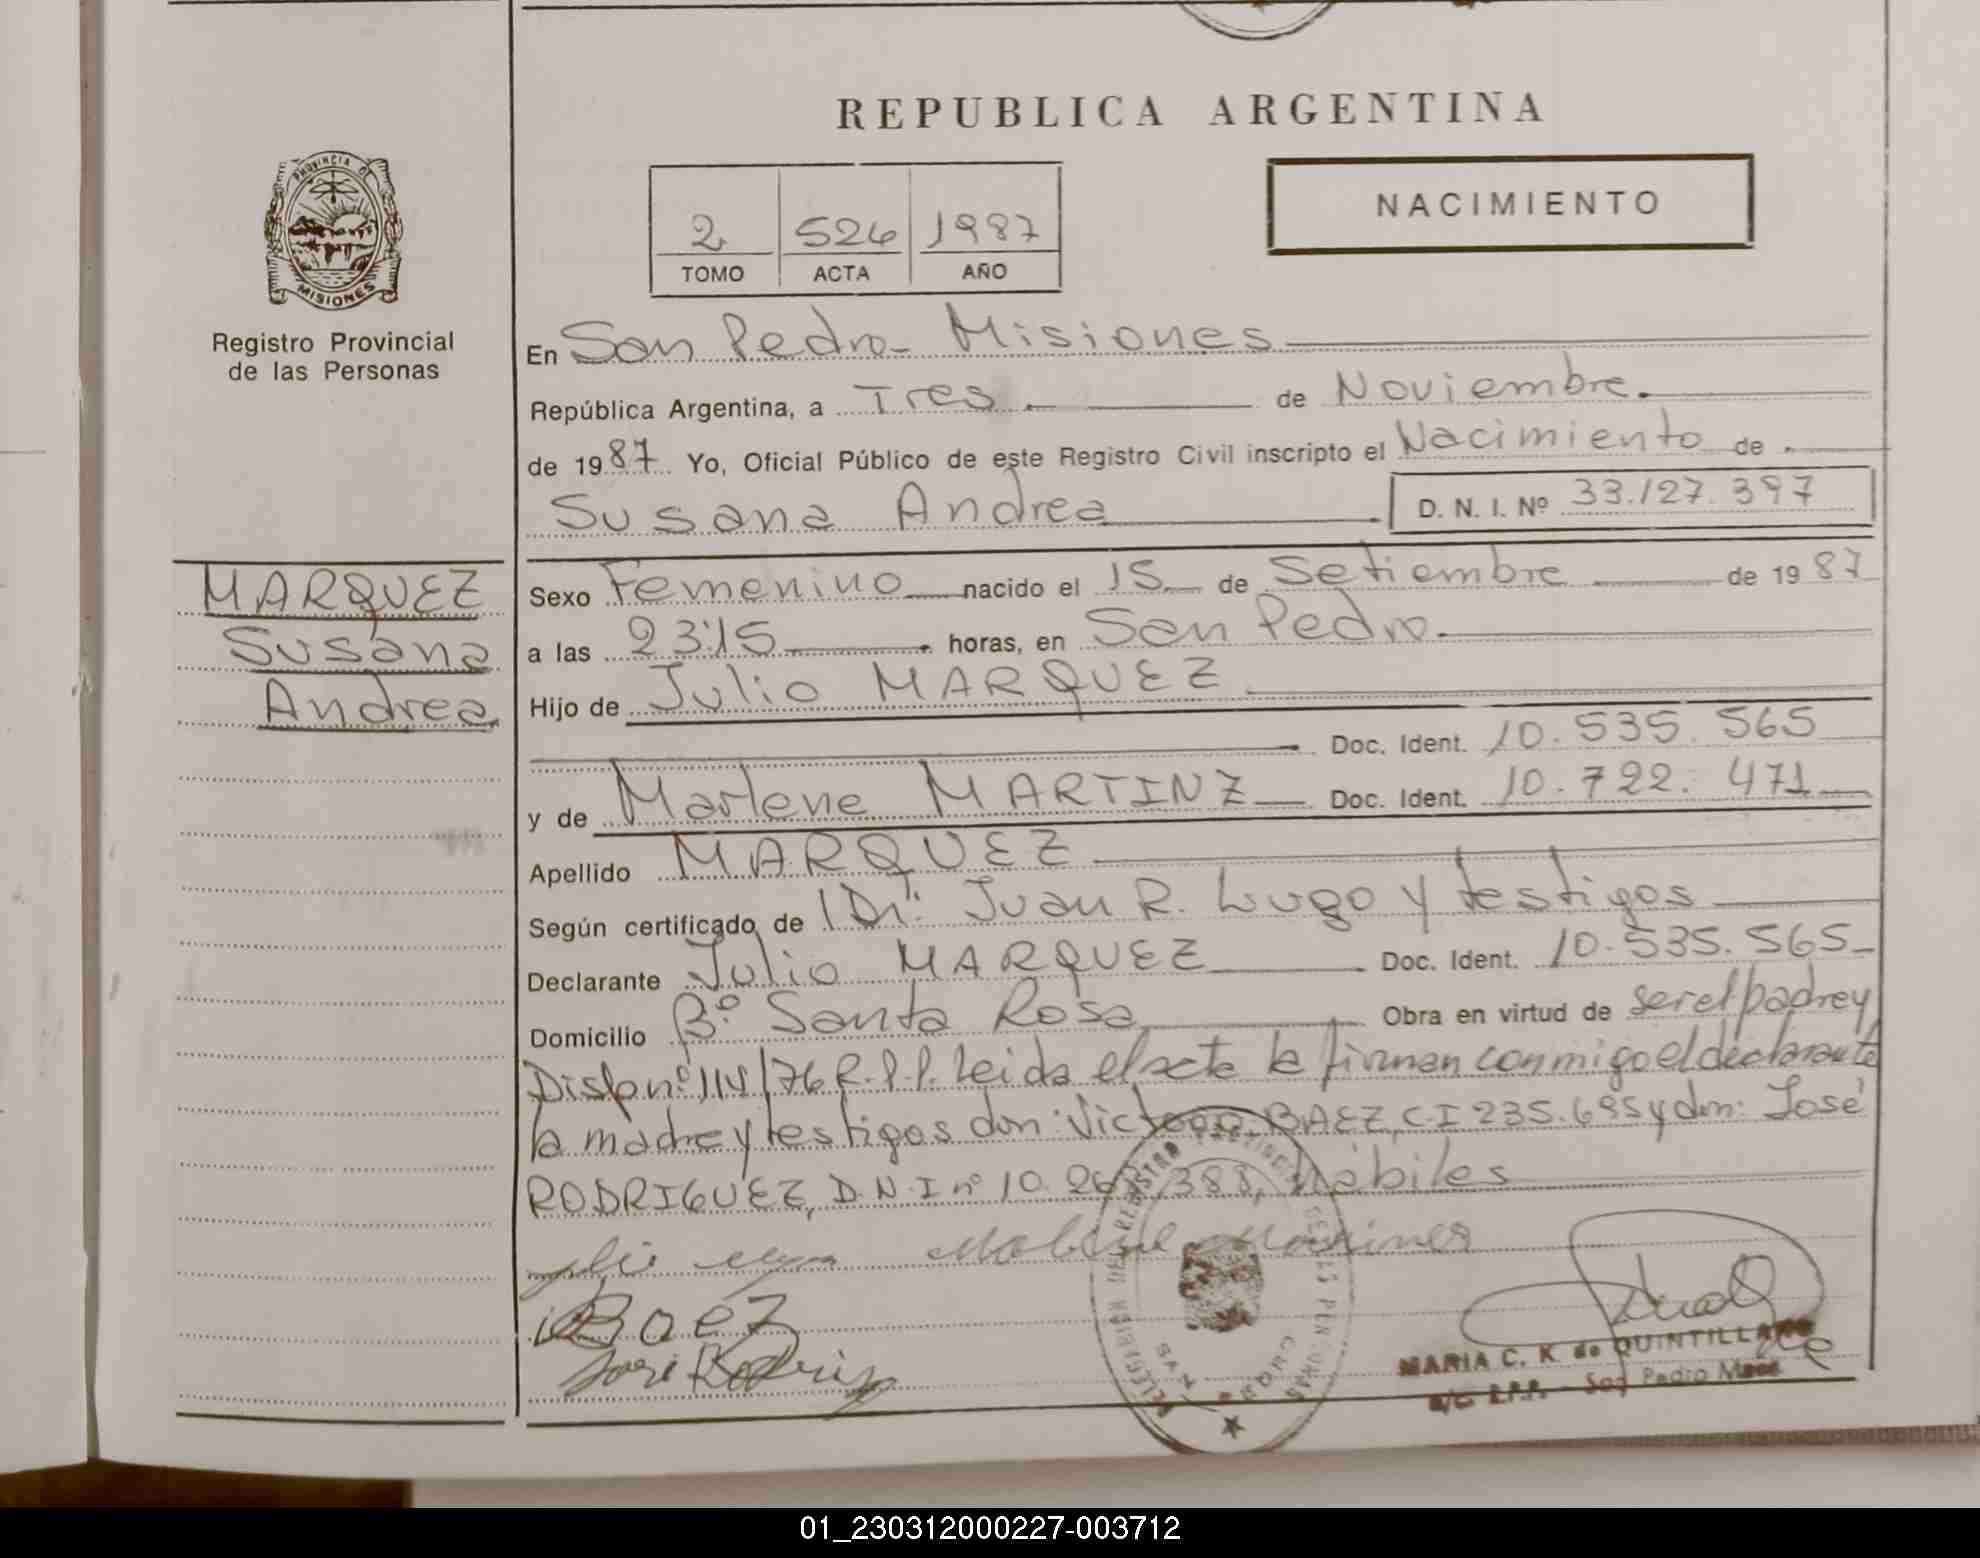 REPUBLICA ARGENTINA
PROVINCIA DE
MISIONES
Registro Provincial
de las Personas
2 526 1987
TOMO ACTA AÑO
NACIMIENTO
En San Pedro - Misiones
República Argentina, a Tres. de Noviembre.
de 1987 Yo, Oficial Público de este Registro Civil inscripto el Nacimiento de
Susana Andrea D. N. I. Nº 33.127.397
MARQUEZ
Susana
Andrea
Sexo Femenino nacido el 15 de Setiembre de 1987
a las 23:15 horas, en San Pedro.
Hijo de Julio MARQUEZ
Doc. Ident. 10.535.565
y de Marlene MARTINZ Doc. Ident. 10.722.471
Apellido MARQUEZ
Según certificado de Dr. Juan R. Lugo y testigos
Declarante Julio MARQUEZ Doc. Ident. 10.535.565
Domicilio Bº Santa Rosa Obra en virtud de ser el padre y
Disp nº 114/76 R.P.P. Leida el acta la firman conmigo el declarante
la madre y testigos don: BAEZ, C.I 235.685 y don: José
RODRIGUEZ, D.N.I nº 10. 388, hábiles
Baez
José
MARIA C. K de QUINTILLANO
a/c R.P.P. - San Pedro Mnes
01_230312000227-003712